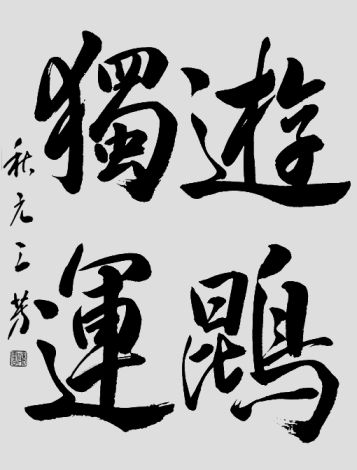 遊鵾
獨運
秋元三芳